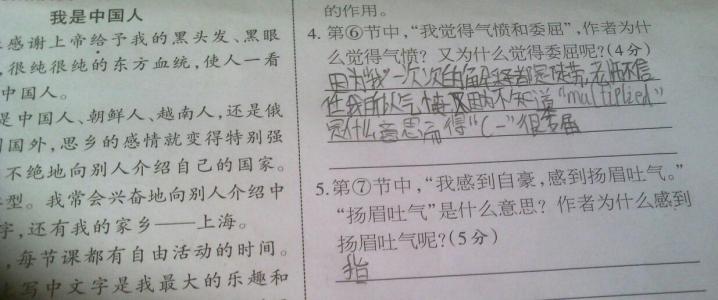 我是中国人
感谢上帝给予我的黑头发、黑眼
,很纯很纯的东方血统,使人一看
中国人。
是中国人、朝鲜人、越南人,还是俄
国外,思乡的感情就变得特别强
不绝地向别人介绍自己的国家。
型。我常会兴奋地向别人介绍中
字,还有我的家乡——上海。
,每节课都有自由活动的时间。
写中文字是我最大的乐趣和
的作用。
4. 第⑥节中,“我觉得气愤和委屈”,作者为什
么觉得气愤?又为什么觉得委屈呢?(4分)
因为“我”一次次的解释都是徒劳,老师不信
任我所以气愤,又因为不知道“multiplied”
是什么意思而得“C-”很委屈
5. 第⑦节中,“我感到自豪,感到扬眉吐气。”
“扬眉吐气”是什么意思?作者为什么感到
扬眉吐气呢?(5分)
指